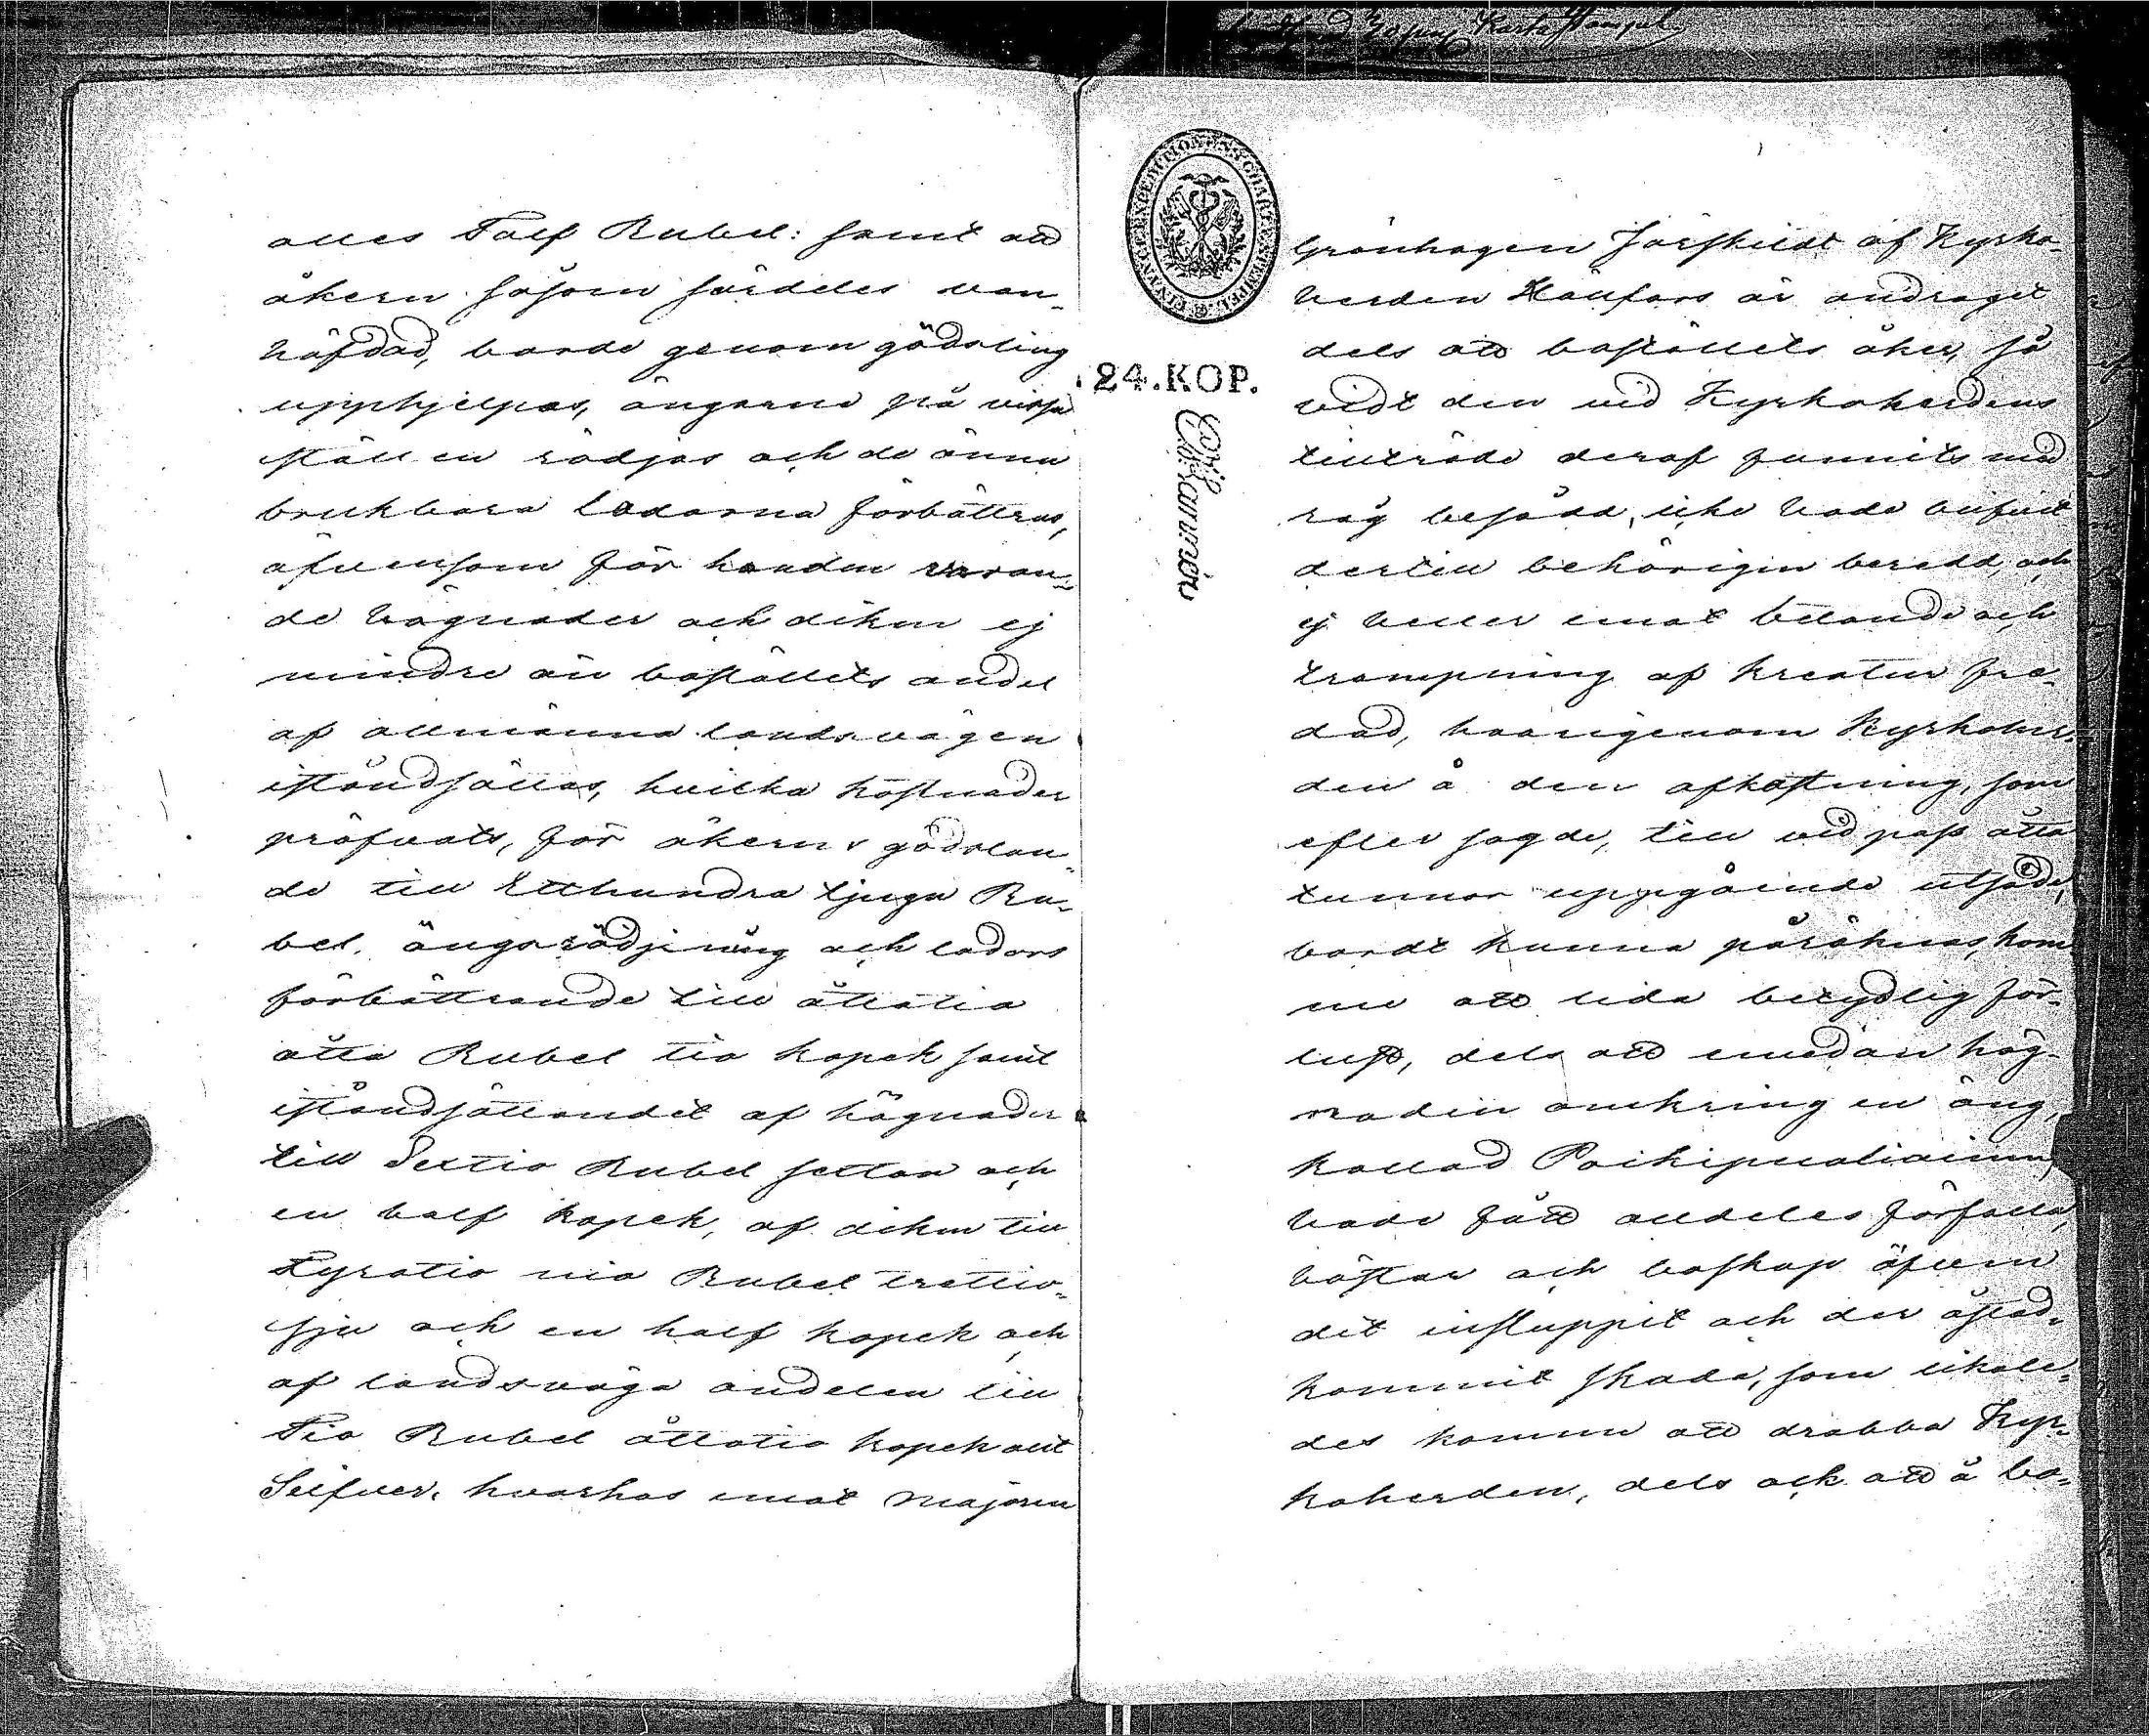 alles Tolf Rubel: samt att
åkern såsom särdeles van-
häfdad, borde genom gödsling
upphjelpas, ängarne på vissa
ställen rödjas och de ännu
brukbara ladorna förbättras,
äfvensom för handen varan-
de hägnader och diken ej
mindre än boställets andel
af allmänna landsvägen
iståndsättas, hvilka kostnader
pröfvats, för åkerns gödslan-
de till Etthundra tjugu Ru-
bel, ängsrödjning och ladors
förbättrande till åttatio
åtta Rubel tio kopek samt
iståndsättandet af hägnader
till Sextio Rubel sexton och
en half kopek, af diken till
Fyratio nio Rubel trettio-
sju och en half kopek och
af landsvägs andelen till
Tio Rubel åttatio kopek allt
Silfver, hvarhos emot Majoren
24.KOP.
Grönhagen Särskildt af Kyrko-
herden Hällfors är andraget
dels att boställets åker, så
vidt den vid Kyrkoherdens
tillträde deraf funnits med
råg besådd, icke hade blifvit
dertill behörigen beredd, och
ej heller emot betande och
trampning af kreatur fre-
dad, hvarigenom Kyrkoher-
den å den afkastning, som
efter sagde, till vid pass åtta
tunnor uppgående utsäde,
bordt kunna påräknas, kom-
me att lida betydlig för-
lust, dels att emedan häg-
naden omkring en äng,
kallad
hade fått alldeles förfalla,
hästar och boskap äfven
dit insluppit och der åstad-
kommit skada, som likale-
des komme att drabba Kyr-
koherden, dels ock att å bo-